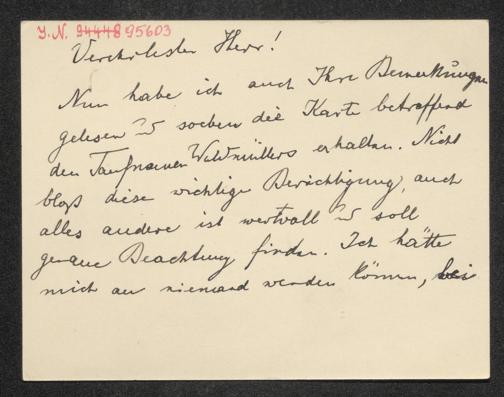 J.N. 94448 95603
Verehrtester Herr!
Nun habe ich auch Ihre Bemerkungen
gelesen u soeben die Karte betreffend
den Taufnamen Waldmüllers erhalten. Nicht
bloß diese wichtige Berichtigung, auch
alles andere ist wertvoll u soll
genaue Beachtung finden. Ich hätte
mich an niemand wenden können, bei